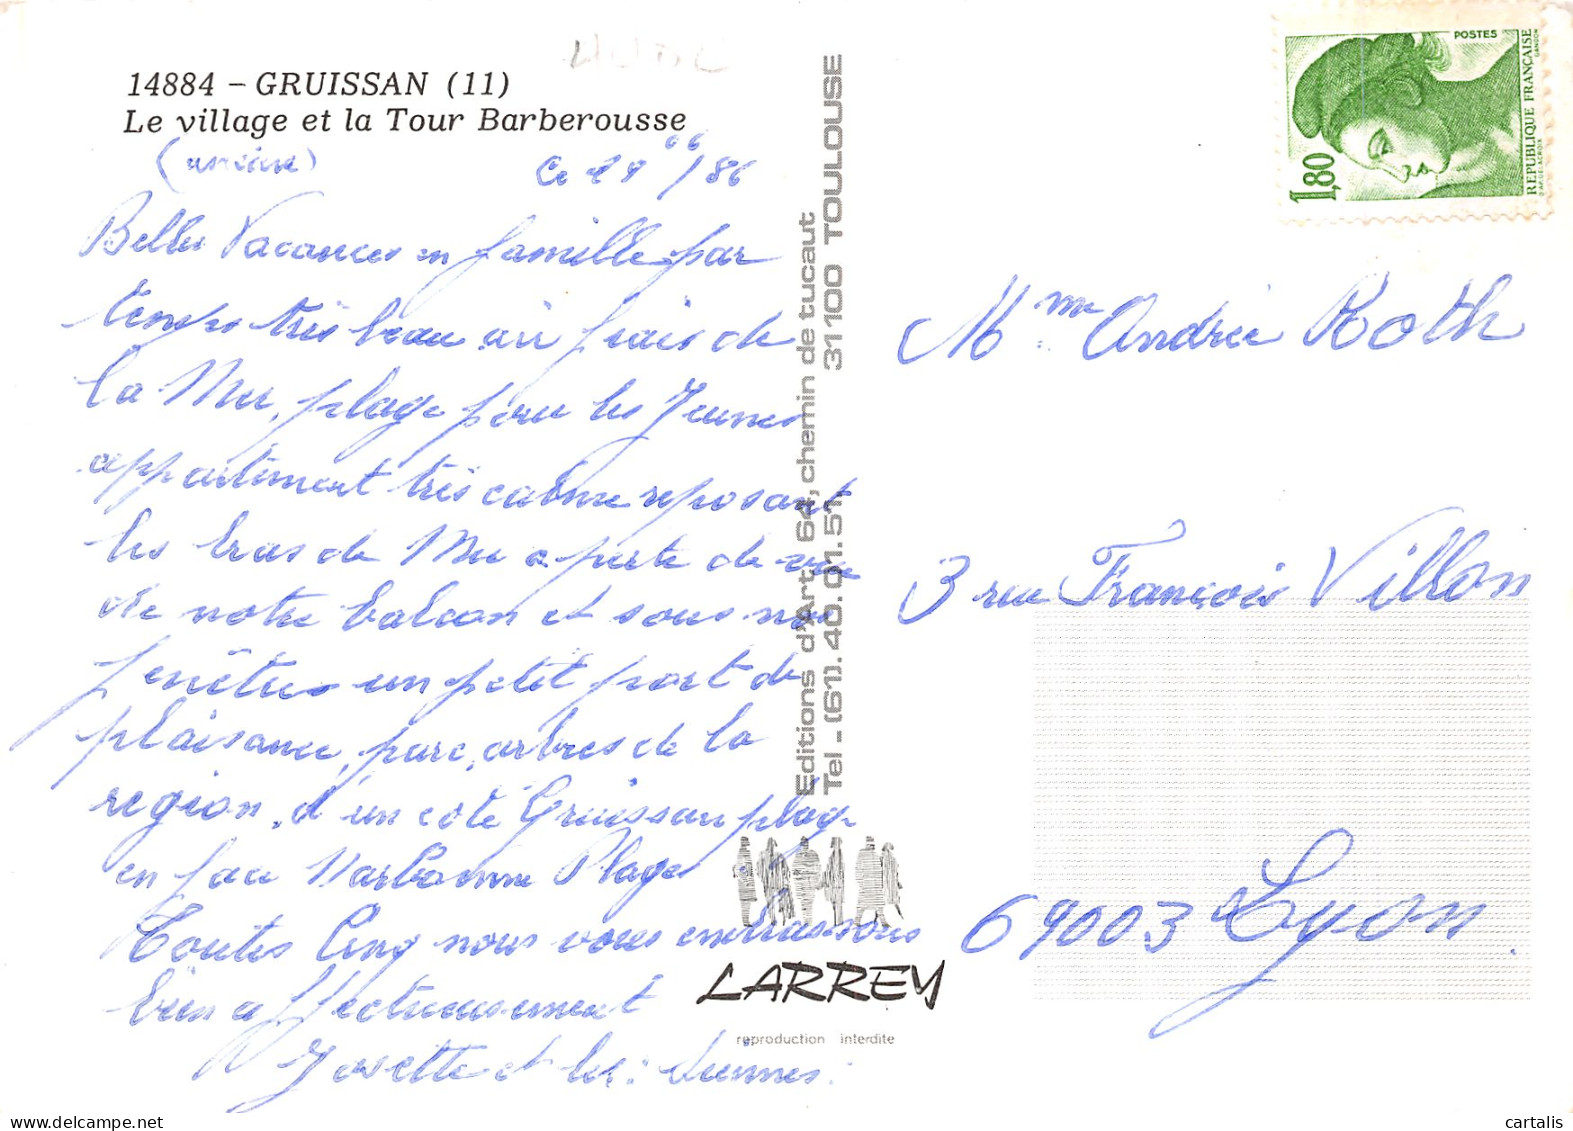 14884 - GRUISSAN (11)
Le village et la Tour Barberousse
Ce 29 06/86
Belles Vacances en famille par
temps très beau air frais de
la Mer, plage pour les Jeunes
appartement très calme reposant
les bras de Mer a perte de vue
de notre balcon et sous nos
fenêtres un petit port de
plaisance, parc, arbres de la
region, d'un coté Gruissan plage
en face Narbonne Plage
Toutes Cinq nous vous embrassons
bien affectueusement
Josette et les Jeunes.
Editions d'Art 64, chemin de tucaut
Tel - (61). 40.01.51 31100 TOULOUSE
LARREY
reproduction interdite
POSTES
1,80
REPUBLIQUE FRANÇAISE
GANDON
Mme Andrée Roth
3 rue François Villon
69003 Lyon.
cartalis
delcampe.net